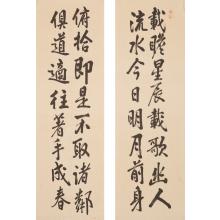 載瞻星辰載歌幽人
流水今日明月前身
俯拾即是不取諸鄰
俱道適往著手成春